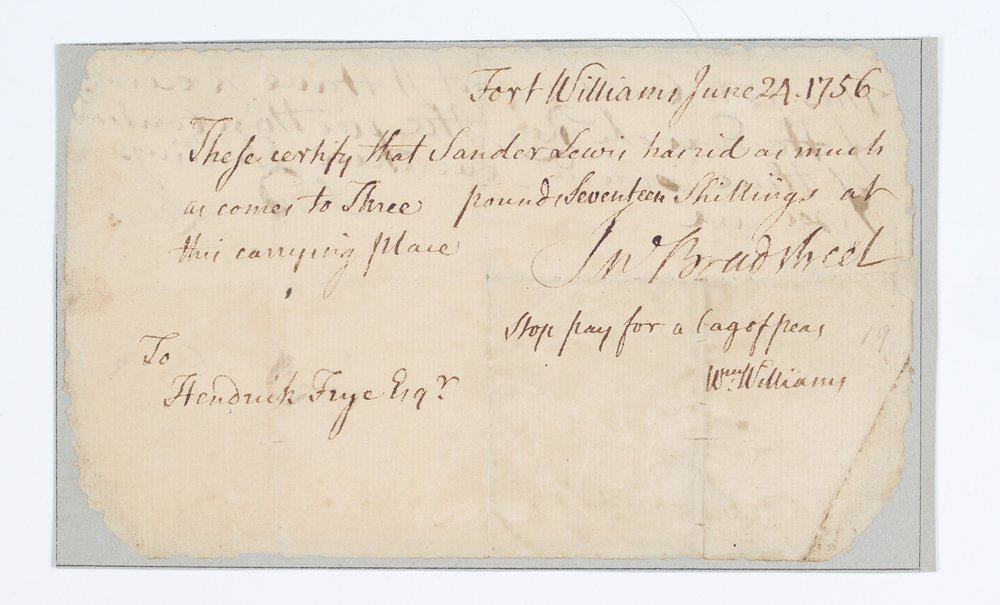 Fort Williams June 24. 1756
These certify that Sander Lewis has rid as much
as comes to Three pounds Seventeen Shillings at
this carrying place
Jnº Bradstreet
Stop pay for a bag of peas
Wm Williams
To
Hendrick Frye Esqr
19